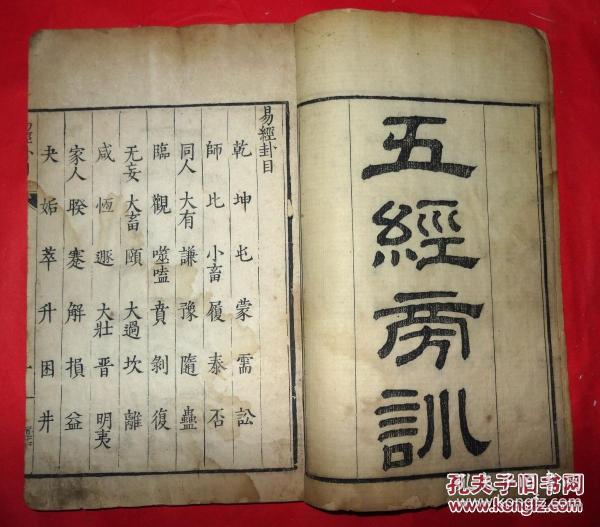 五經旁訓
易經卦目
乾 坤 屯 蒙 需 訟
師 比 小畜 履 泰 否
同人 大有 謙 豫 隨 蠱
臨 觀 噬嗑 賁 剝 復
无妄 大畜 頤 大過 坎 離
咸 恆 遯 大壯 晉 明夷
家人 睽 蹇 解 損 益
夬 姤 萃 升 困 井
孔夫子旧书网
www.kongfz.com